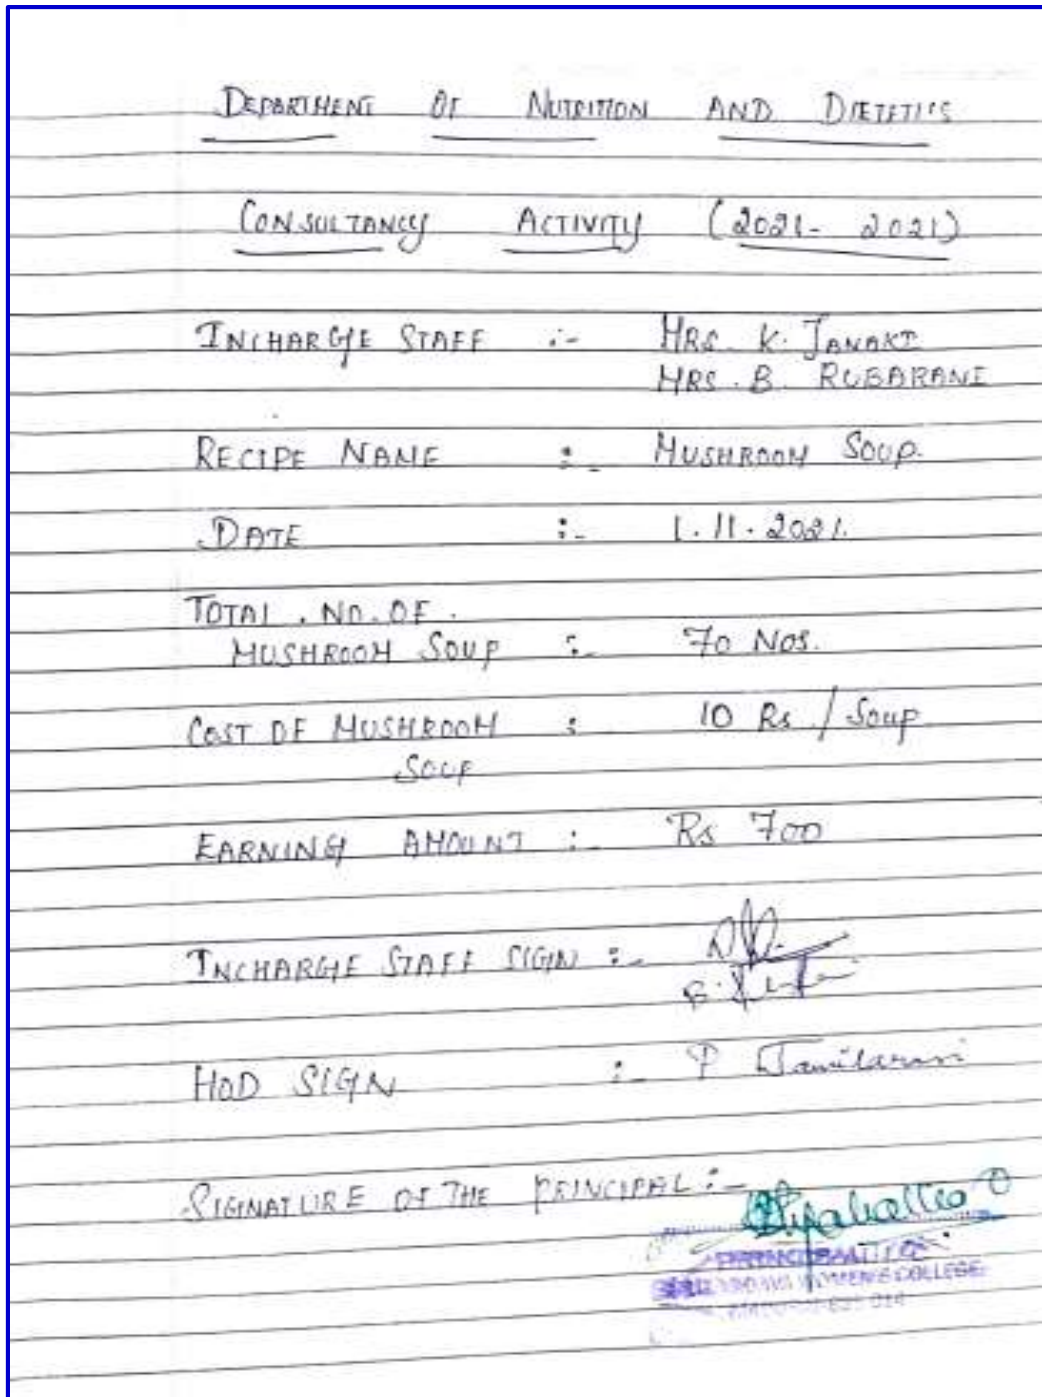 DEPARTMENT OF NUTRITION AND DIETETICS
CONSULTANCY ACTIVITY (2021- 2021)
INCHARGE STAFF :- MRS. K. JANAKI
MRS. B. RUBARANI
RECIPE NAME :- MUSHROOM SOUP.
DATE :- 1.11.2021.
TOTAL . NO. OF .
MUSHROOM SOUP :- 70 NOS.
COST OF MUSHROOM : 10 Rs / Soup
SOUP
EARNING AMOUNT :- Rs 700
INCHARGE STAFF SIGN :-
B.
HOD SIGN :- P Tamilarasi
SIGNATURE OF THE PRINCIPAL :-
PRINCIPAL
WOMEN'S COLLEGE